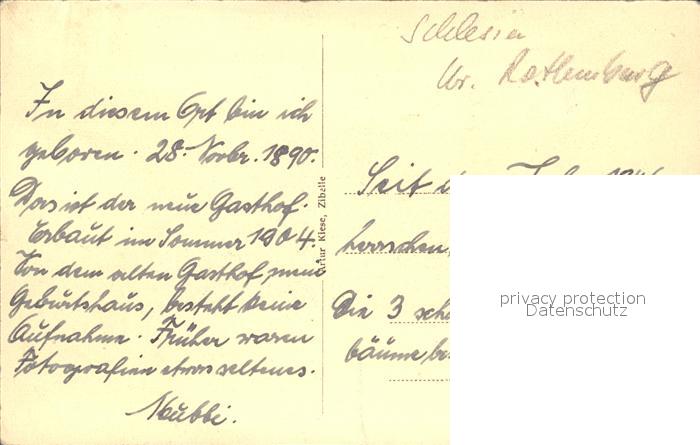 Schlesien
Kr. Rothenburg
In diesem Ort bin ich
geboren. 28. Novbr. 1890.
Das ist der neue Gasthof.
Erbaut im Sommer 1904.
Von dem alten Gasthof, mein
Geburtshaus, besteht keine
Aufnahme. Früher waren
Fotografien etwas seltenes.
Mubbi.
Artur Klese, Zibelle
Seit
herrschen,
Die 3
bäume
privacy protection
Datenschutz